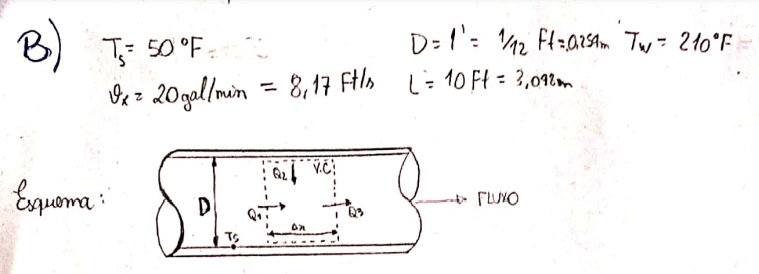 B) Ts = 50 °F D = 1' = 1/12 Ft = 0,254m Tw = 210°F
ϑx = 20 gal/min = 8,17 Ft/s L = 10 Ft = 3,048m
Esquema:
Q2 V.C
D Q1 Q3 FLUXO
Δx
Ts